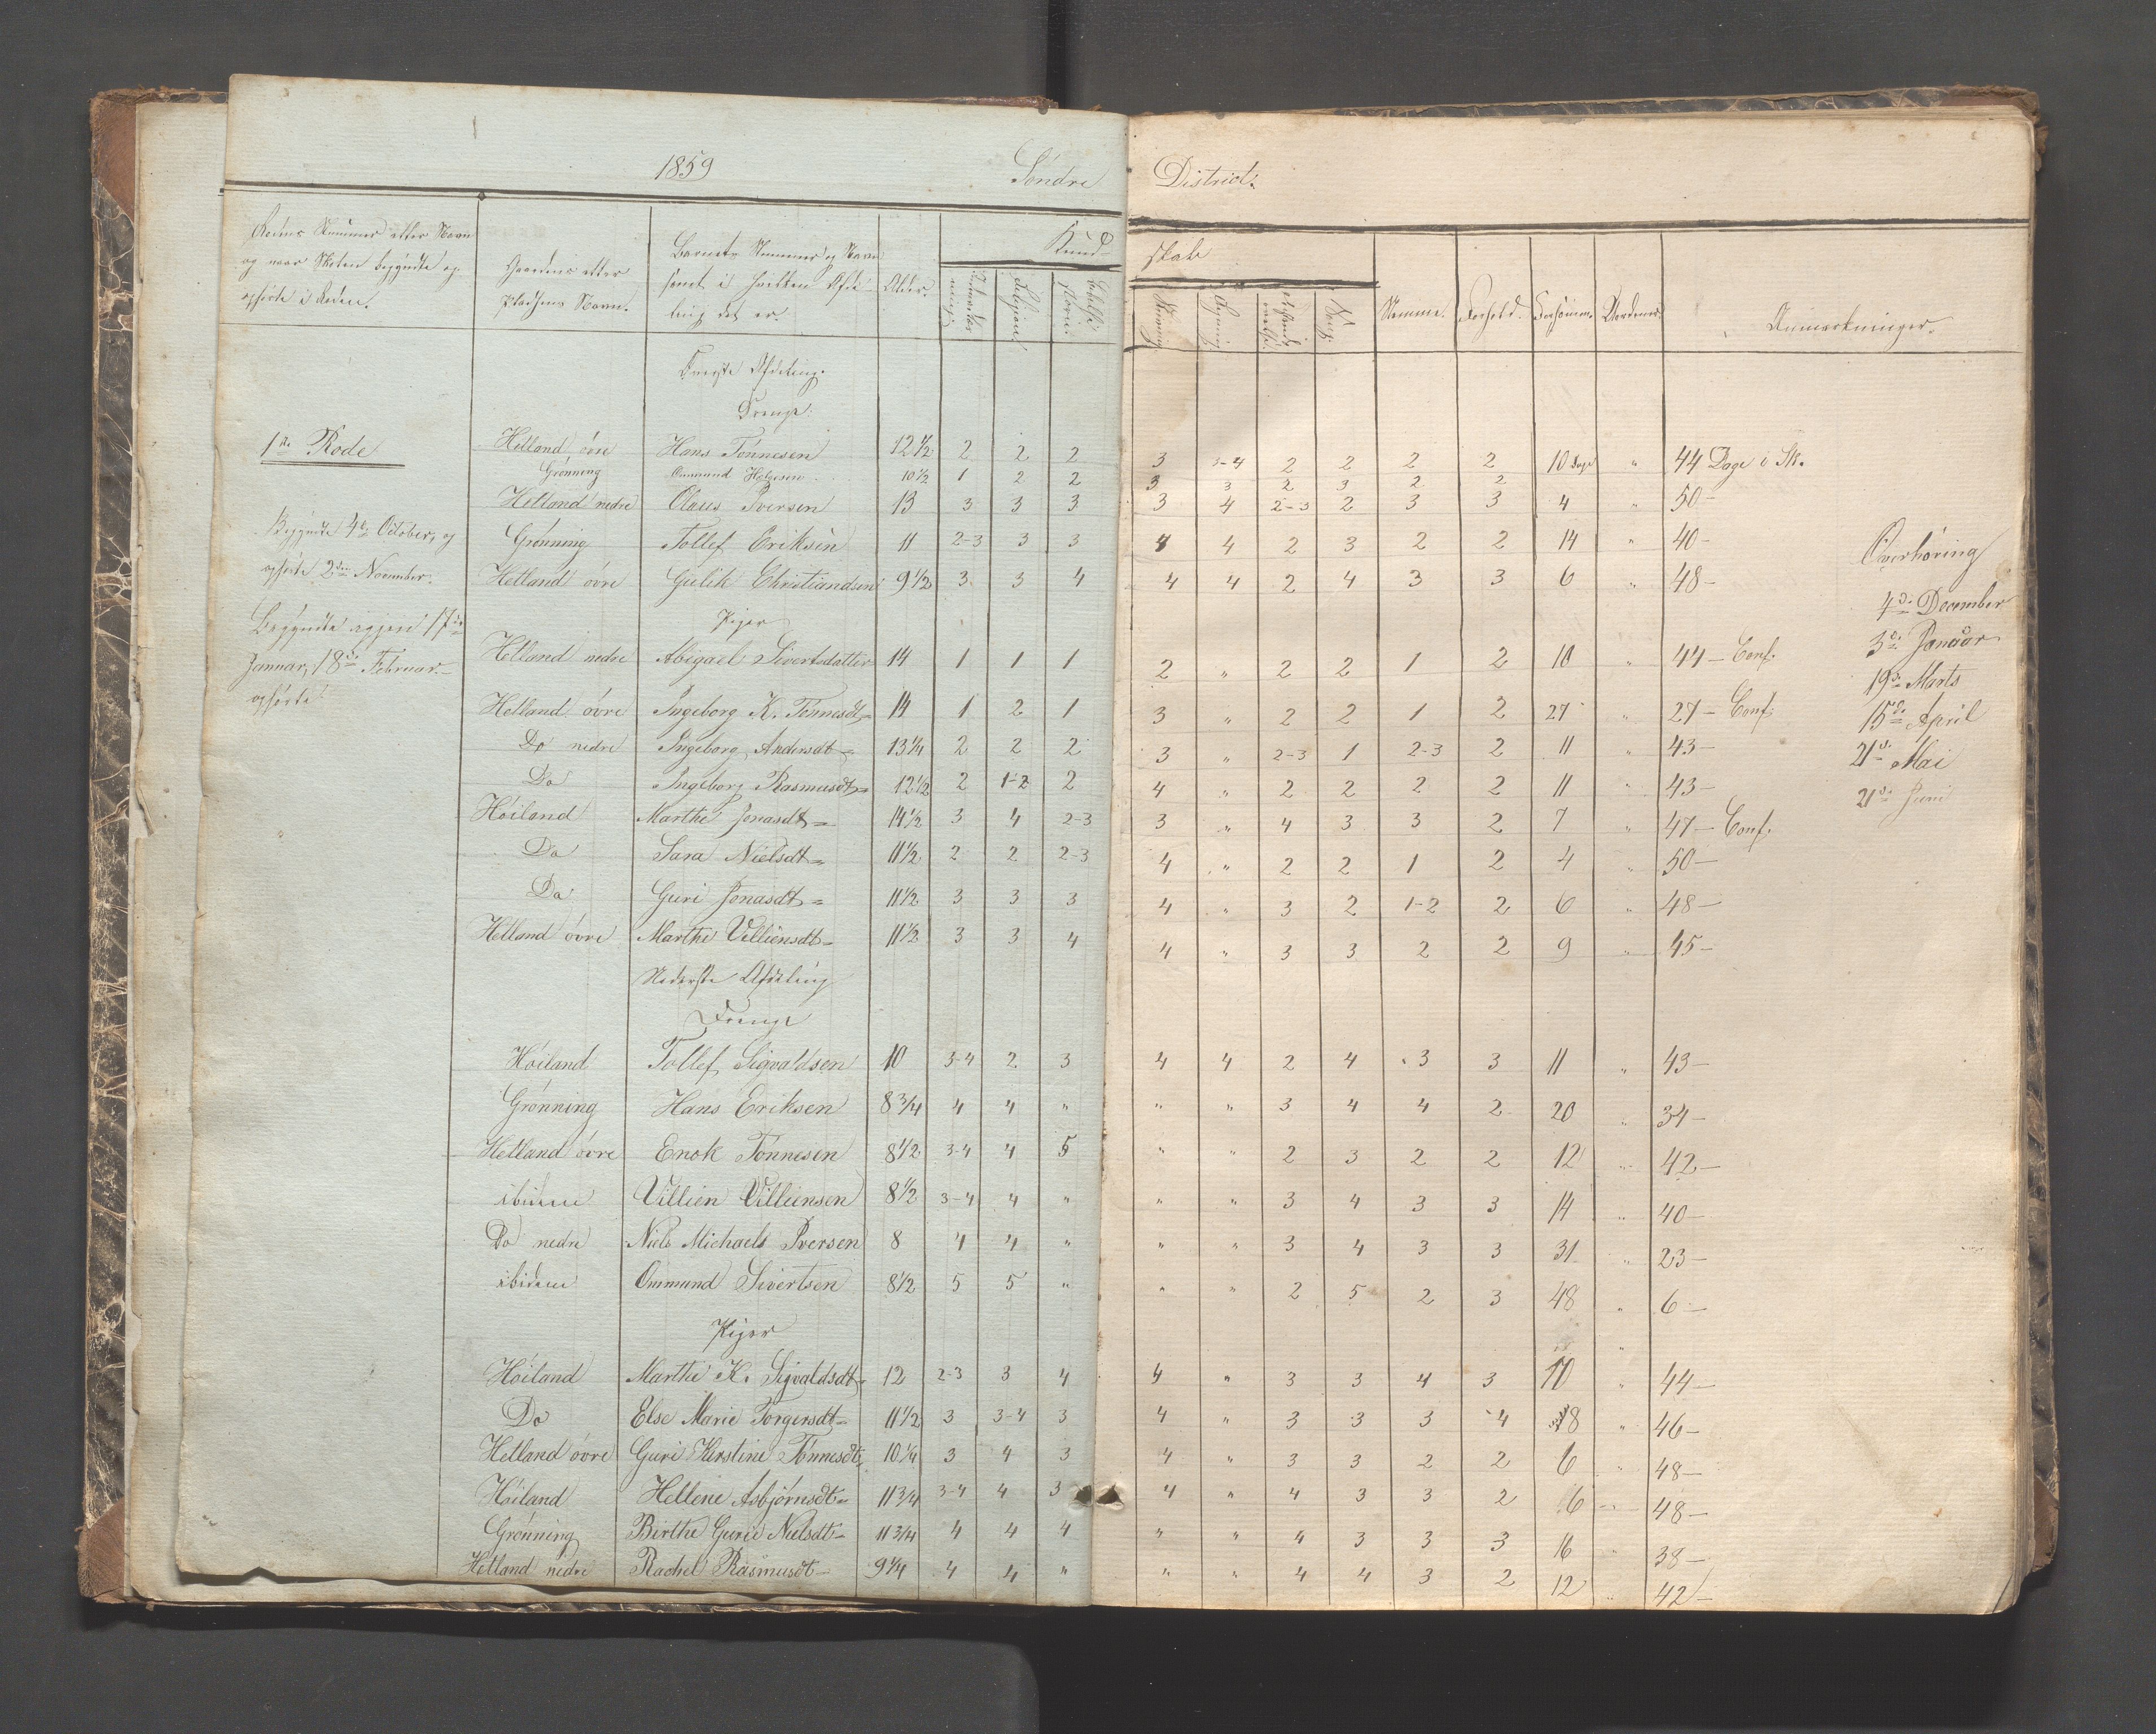 1859 Søndre District.
Rodens Nummer eller Navn og naar Skolen begyndte og ophørte i Roden. | Gaardens eller Pladsens Navn. | Barnets Nummer og Navn samt i hvilken Afdeling det er. | Alder. | Kundskab | Nemme. | Forhold. | Forsømm. | Anmærkninger.
Religion | Skrivning. | Regning | Sang.
Øverste Afdeling.
Drenge:
1ste Rode
Helland øvre Hans Tönnesen 12 1/2 2 2 2 3 3-4 2 2 2 2 10 Dage " 44 Dage i Sk.
Grönning Ommund Helgesen 10 1/2 1 2 2 3 3 2 3 2 2
Helland nedre Olaus Iversen 13 3 3 3 3 4 2-3 2 3 3 4 " 50-
Begyndte 4de October, og
Grønning Tollef Eriksen 11 2-3 3 3 4 4 2 3 2 2 14 " 40-
ophørte 2den November.
Helland øvre Gulik Christiandsen 9 1/2 3 3 4 4 4 2 4 3 3 6 " 48-
Overhøring
4de December
3de Januar
19de Marts
15de April
21de Mai
21de Juni
Begyndte igjen 17de
Januar, 18de Februar
ophørte
Piger
Helland nedre Abigael Sivertsdatter 14 1 1 1 2 " 2 2 1 2 10 " 44- Conf.
Helland øvre Ingeborg K. Tönnesdt= 14 1 2 1 3 " 2 2 1 2 27 " 27- Conf.
Do nedre Ingeborg Andersdt= 13 1/4 2 2 2 3 " 2-3 1 2-3 2 11 " 43-
Do Ingeborg Rasmusdt= 12 1/2 2 1-2 2 4 " 2 2 2 2 11 " 43-
Høiland Marthe Jonasdt= 14 1/2 3 4 2-3 3 " 4 3 3 2 7 " 47- Conf.
Do Sara Nielsdt= 11 1/2 2 2 2-3 4 " 2 2 1 2 4 " 50-
Do Guri Jonasdt= 11 1/2 3 3 3 4 " 3 2 1-2 2 6 " 48-
Helland øvre Marthe Villiensdt= 11 1/2 3 3 4 4 " 3 3 2 2 9 " 45-
Nederste Afdeling
Drenge
Høiland Tollef Sigvaldsen 10 3-4 2 3 4 4 2 4 3 3 11 " 43-
Grønning Hans Eriksen 8 3/4 4 4 " " " 3 4 4 2 20 " 34-
Helland øvre Enok Tönnesen 8 1/2 3-4 4 5 " " 2 3 2 2 12 " 42-
ibidem Villien Villiensen 8 1/2 3-4 4 " " " 3 4 3 3 14 " 40-
Do nedre Niels Michaels Iversen 8 4 4 " " " 3 4 3 3 31 " 23-
ibidem Ommund Sivertsen 8 1/2 5 5 " " " 2 5 2 3 48 " 6-
Piger
Høiland Marthe K. Sigvaldsdt= 12 2-3 3 4 4 " 3 3 4 3 10 " 44-
Do Else Marie Torgersdt= 11 1/2 3 3-4 3 4 " 3 3 3 4 8 " 46-
Helland øvre Guri Kirstine Tönnesdt= 10 1/4 3 4 3 4 " 3 3 2 2 6 " 48-
Høiland Hellene Asbjørnsdt= 11 3/4 3-4 4 3 4 " 4 3 3 2 6 " 48-
Grønning Birthe Gurie Nielsdt= 11 3/4 4 4 4 " " 4 3 3 3 16 " 38-
Helland nedre Rachel Rasmusdt= 9 1/4 4 4 " " " 4 4 3 2 12 " 42-